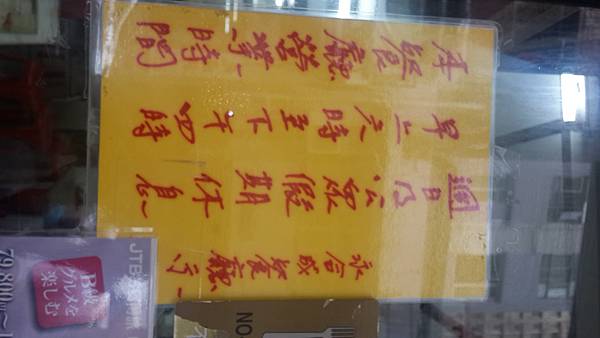 本餐廳營業時間
早上六時至下午四時
週日及公眾假期休息
永合成餐廳示
JTB
B級
グルメを
楽しむ
79,800
NO